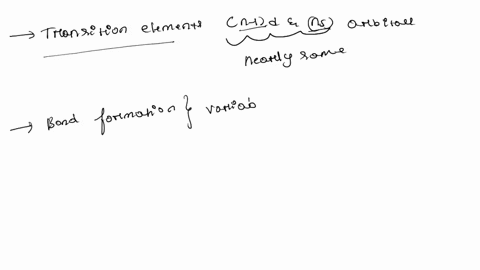 → Transition elements (n-1)d & (ns) orbitall
nearly same
→ Bond formation } variab